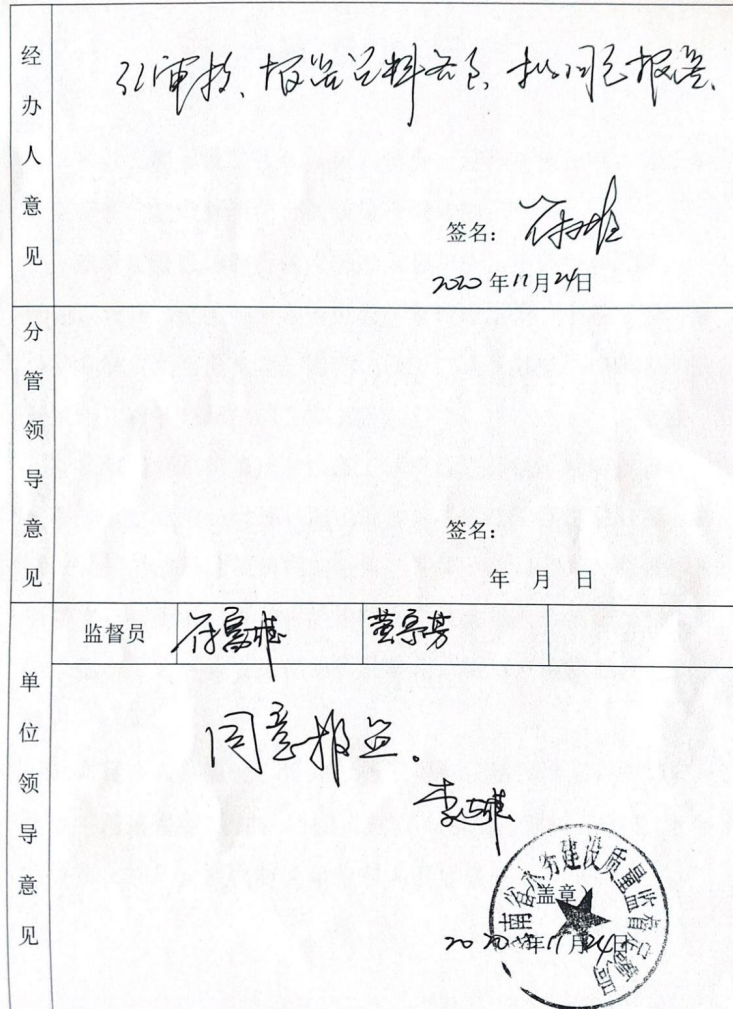 经办人意见
经审核、报监资料齐全、拟同意报监、
签名：
2020年11月24日
分管领导意见
签名：
年 月 日
监督员 符富雄
单位领导意见
同意报监。
(盖章)
2020年11月24日
南省水务建设质量监督